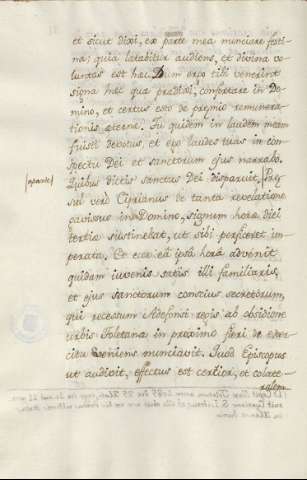 et sicut dixi, ex parte mea nunciare festi-
na; quia letabitur audiens, et divina vo-
luntas est hæc. Dum ergo tibi venerint
signa hæc quæ prædixi, confortare in Do-
mino, et certus esto de præmio remunera-
tionis æternæ. Tu quidem in laudem meam
fuisti devotus, et ego laudes tuas in con-
spectu Dei et sanctorum ejus narrabo.
Quibus dictis sanctus Dei disparuit, Præ-
sul vero Ciprianus de tanta revelatione
gavissus in Domino, signum hora diei
tertia sustinebat, ut sibi perficeret im-
perata. Et ecce eâ ipsâ horâ advenit
quidam iuvenis satis illi familiaris,
et ejus sanctorum conscius secretorum,
qui recessum Adefonsi regis ab obsidione
urbis Toletanæ in proximo fieri de exer-
citu veniens nunciavit. Quod Episcopus
ut audivit, effectus est certior, et colate-
ralem
(aparte)